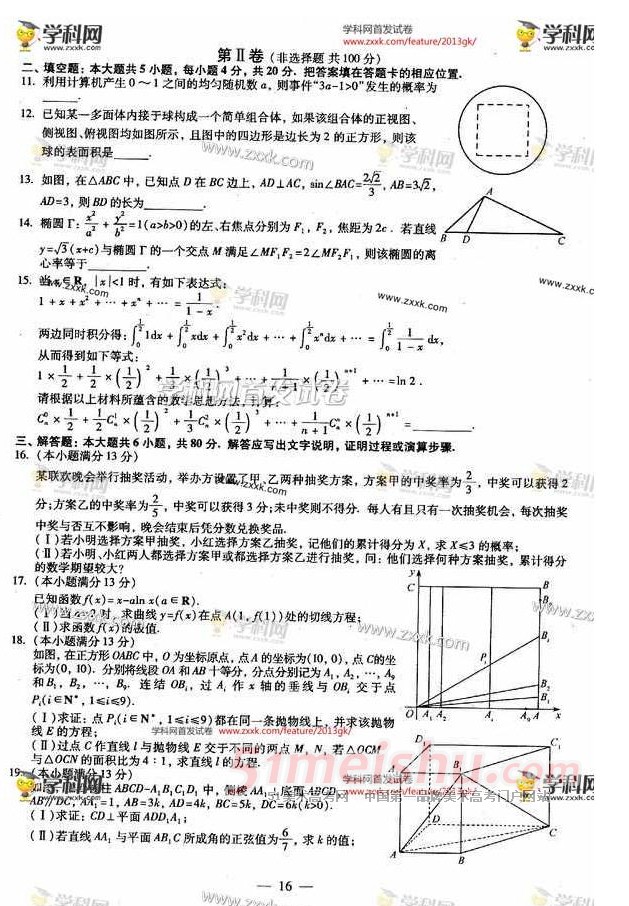 学科网
www.zxxk.com
学科网首发试卷
www.zxxk.com/feature/2013gk/
学科网
www.zxxk.com
第Ⅱ卷(非选择题 共100分)
二、填空题：本大题共5小题，每小题4分，共20分．把答案填在答题卡的相应位置．
11. 利用计算机产生0～1之间的均匀随机数a，则事件“3a-1>0”发生的概率为
______．
12. 已知某一多面体内接于球构成一个简单组合体，如果该组合体的正视图、
侧视图、俯视图均如图所示，且图中的四边形是边长为2的正方形，则该
球的表面积是______．
13. 如图，在△ABC中，已知点D在BC边上，AD⊥AC，sin∠BAC=2√2/3，AB=3√2，
AD=3，则BD的长为______．
A
B D C
14. 椭圆Γ：x²/a²+y²/b²=1(a>b>0)的左、右焦点分别为F₁，F₂，焦距为2c．若直线
y=√3(x+c)与椭圆Γ的一个交点M满足∠MF₁F₂=2∠MF₂F₁，则该椭圆的离
心率等于______．
15. 当x∈R，|x|<1时，有如下表达式：
1+x+x²+…+xⁿ+…=1/(1-x)．
两边同时积分得：∫₀^(1/2)1dx+∫₀^(1/2)xdx+∫₀^(1/2)x²dx+…+∫₀^(1/2)xⁿdx+…=∫₀^(1/2)1/(1-x)dx，
从而得到如下等式：
1×1/2+1/2×(1/2)²+1/3×(1/2)³+…+1/(n+1)×(1/2)ⁿ⁺¹+…=ln2．
请根据以上材料所蕴含的数学思想方法，计算：
Cₙ⁰×1/2+1/2Cₙ¹×(1/2)²+1/3Cₙ²×(1/2)³+…+1/(n+1)Cₙⁿ×(1/2)ⁿ⁺¹=______．
三、解答题：本大题共6小题，共80分．解答应写出文字说明，证明过程或演算步骤．
16. (本小题满分13分)
某联欢晚会举行抽奖活动，举办方设置了甲、乙两种抽奖方案，方案甲的中奖率为2/3，中奖可以获得2
分；方案乙的中奖率为2/5，中奖可以获得3分；未中奖则不得分．每人有且只有一次抽奖机会，每次抽奖
中奖与否互不影响，晚会结束后凭分数兑换奖品．
(Ⅰ)若小明选择方案甲抽奖，小红选择方案乙抽奖，记他们的累计得分为X，求X≤3的概率；
(Ⅱ)若小明、小红两人都选择方案甲或都选择方案乙进行抽奖，问：他们选择何种方案抽奖，累计得分
的数学期望较大？
17. (本小题满分13分)
已知函数f(x)=x-alnx(a∈R)．
(Ⅰ)当a=2时，求曲线y=f(x)在点A(1，f(1))处的切线方程；
(Ⅱ)求函数f(x)的极值．
18. (本小题满分13分)
如图，在正方形OABC中，O为坐标原点，点A的坐标为(10，0)，点C的坐
标为(0，10)．分别将线段OA和AB十等分，分点分别记为A₁，A₂，…，A₉
和B₁，B₂，…，B₉．连结OBᵢ，过Aᵢ作x轴的垂线与OBᵢ交于点
Pᵢ(i∈N*，1≤i≤9)．
(Ⅰ)求证：点Pᵢ(i∈N*，1≤i≤9)都在同一条抛物线上，并求该抛物
线E的方程；
(Ⅱ)过点C作直线l与抛物线E交于不同的两点M，N，若△OCM
与△OCN的面积比为4：1，求直线l的方程．
y C B
Pᵢ Bᵢ
B₂
B₁
O A₁ A₂ Aᵢ A₉ A x
19. (本小题满分13分)
AA₁⊥底面ABCD，
AB∥DC，AA₁=1，AB=3k，AD=4k，BC=5k，DC=6k(k>0)．
(Ⅰ)求证：CD⊥平面ADD₁A₁；
(Ⅱ)若直线AA₁与平面AB₁C所成角的正弦值为6/7，求k的值；
D₁ C₁
A₁ B₁
D C
A B
51meishu.com
— 16 —